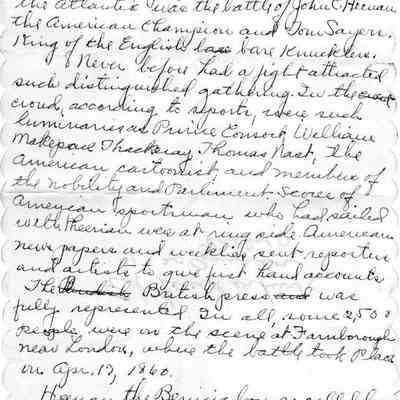 the Atlantic was the battle of John C. Heenan
the American Champion and Tom Sayers.
King of the English bare Knucklers.
Never before had a fight attracted
such distinguished gathering. In the
crowd, according to reports, were such
luminaries as Prince Consort, William
Makepeace Thackeray, Thomas Nast, The
American cartoonist, and members of
the nobility and Parliment. Scores of
American sportsman, who had sailed
with Heenan were at ring side. American
news papers and weeklies sent reporters
and artists to give just hand accounts
The British British press and was
fully represented. In all, some 2,500
people, were on the scene at Farnborough
near London, where the battle took place
on Apr. 17, 1860.
Heenan the Benicia boy as called